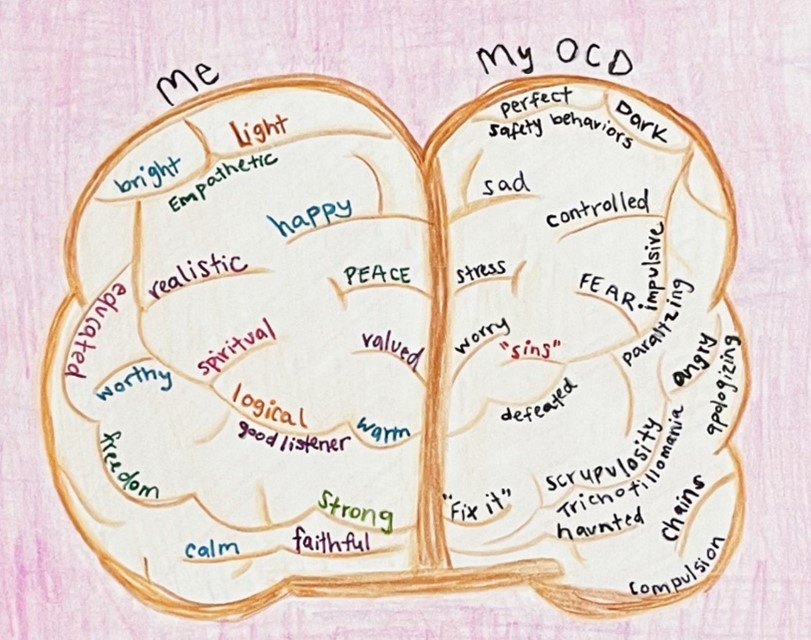 Me
Light
bright
Empathetic
happy
realistic
PEACE
educated
spiritual
valued
worthy
logical
good listener
warm
freedom
Strong
calm
faithful
My OCD
perfect
Dark
safety behaviors
sad
controlled
impulsive
stress
FEAR
paralizing
worry
"sins"
angry
apologizing
defeated
scrupulosity
Trichotillomania
"Fix it"
haunted
Chains
Compulsion